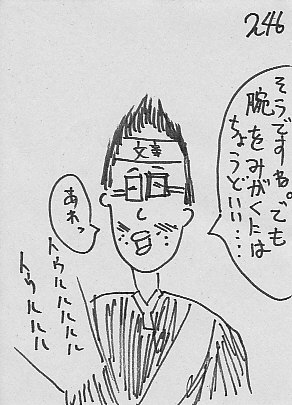 246
そうですね。でも
腕をみがくには
ちょうどいい‥‥
あれっ
トゥルルルルル
トゥルルル